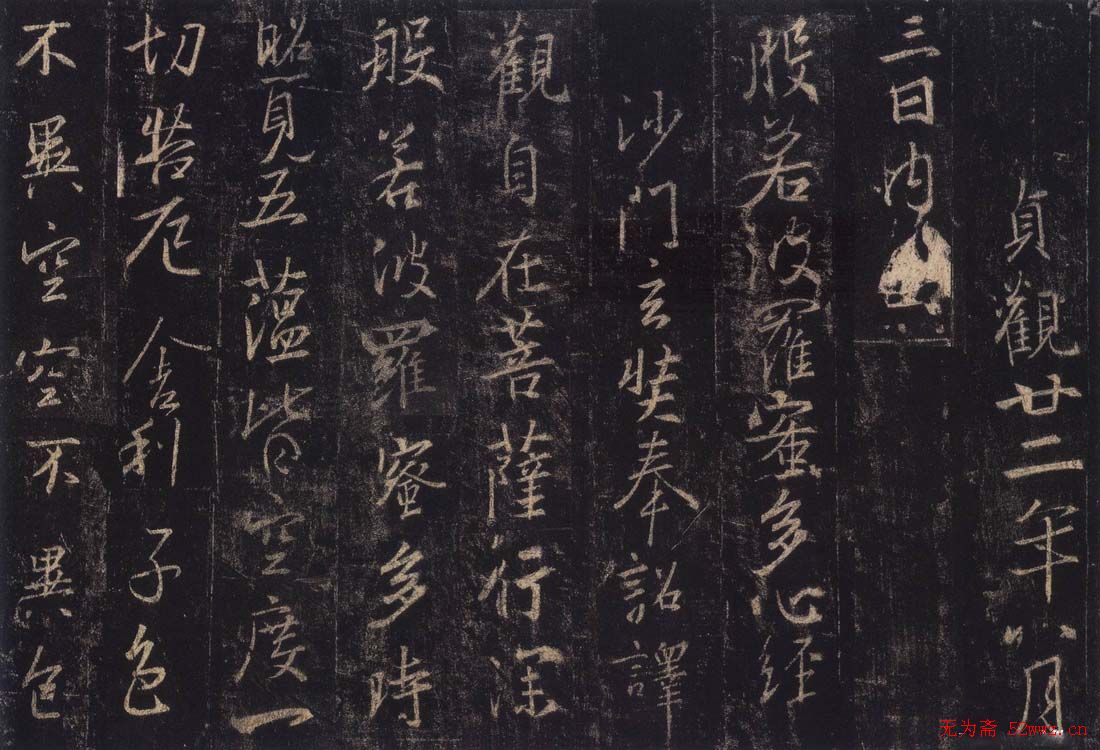 貞觀廿二年八月
三日內出
般若波羅蜜多心經
沙門玄奘奉詔譯
觀自在菩薩行深
般若波羅蜜多時
照見五蘊皆空度一
切苦厄舍利子色
不異空空不異色
无为斋 52wwz.cn